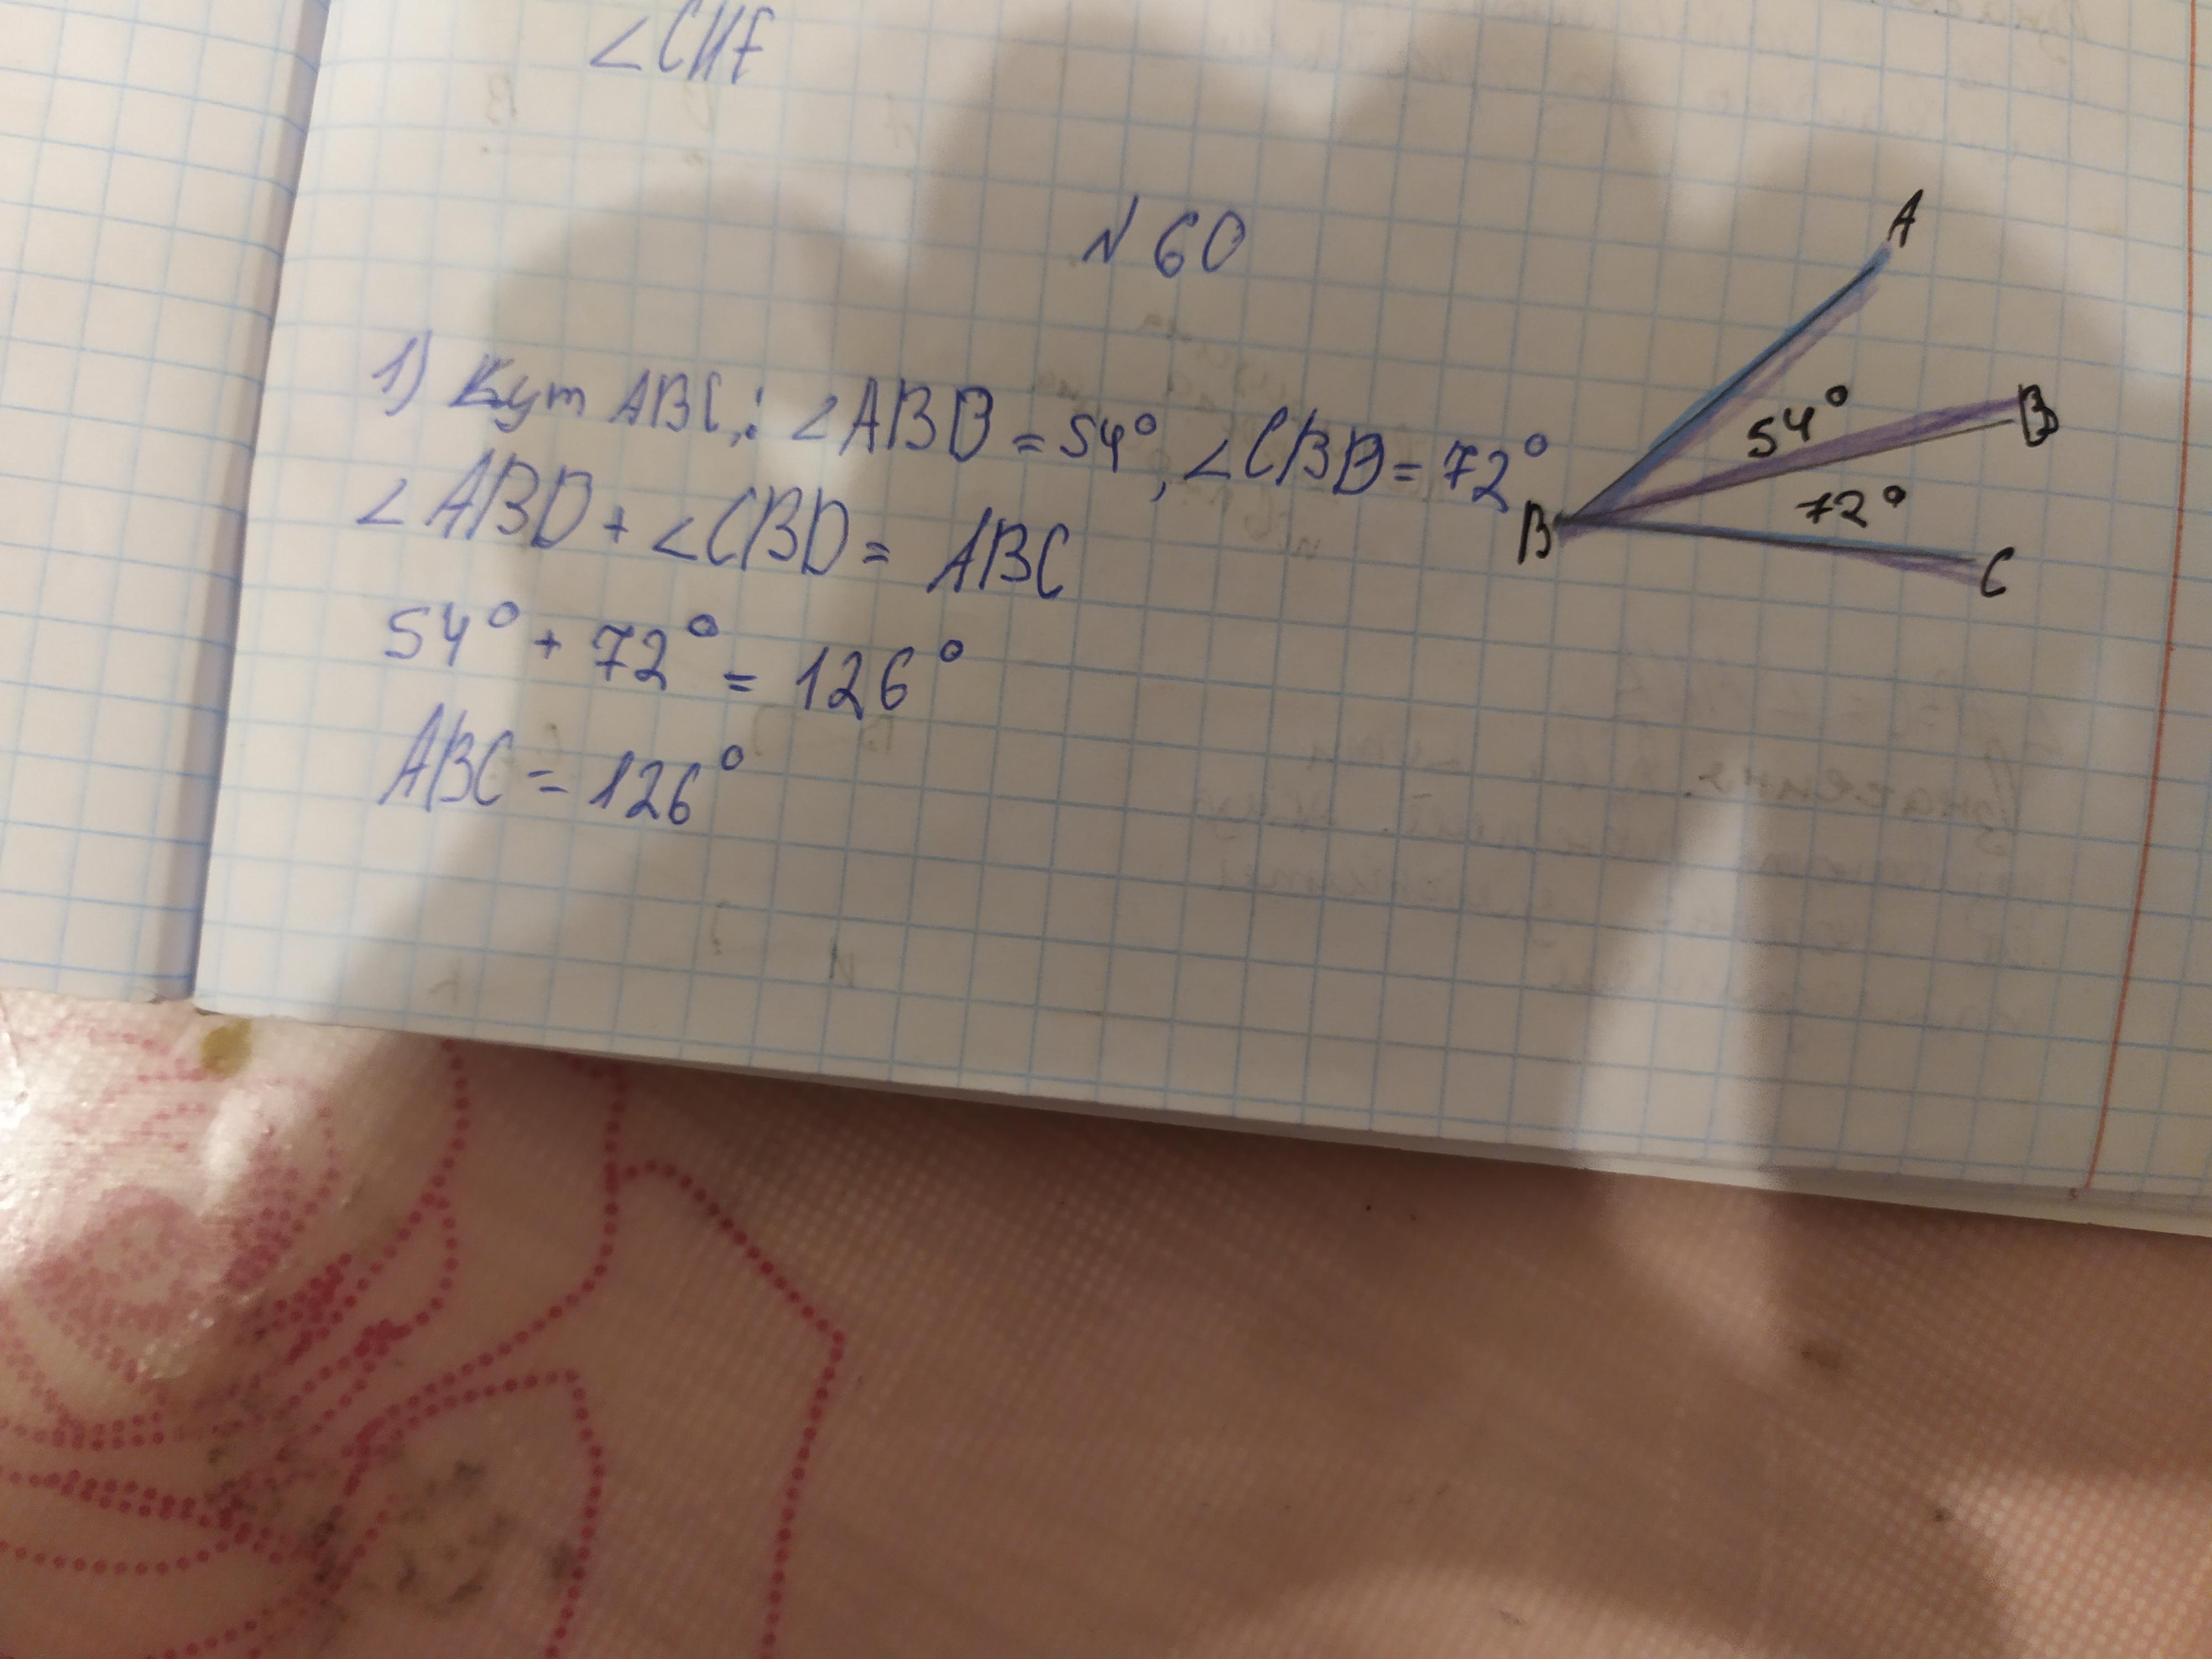 ∠CHF
№60
1) Кут ABC,: ∠ABD = 54°, ∠CBD = 72°
∠ABD + ∠CBD = ABC
54° + 72° = 126°
ABC = 126°
A
D
54°
72°
B
C